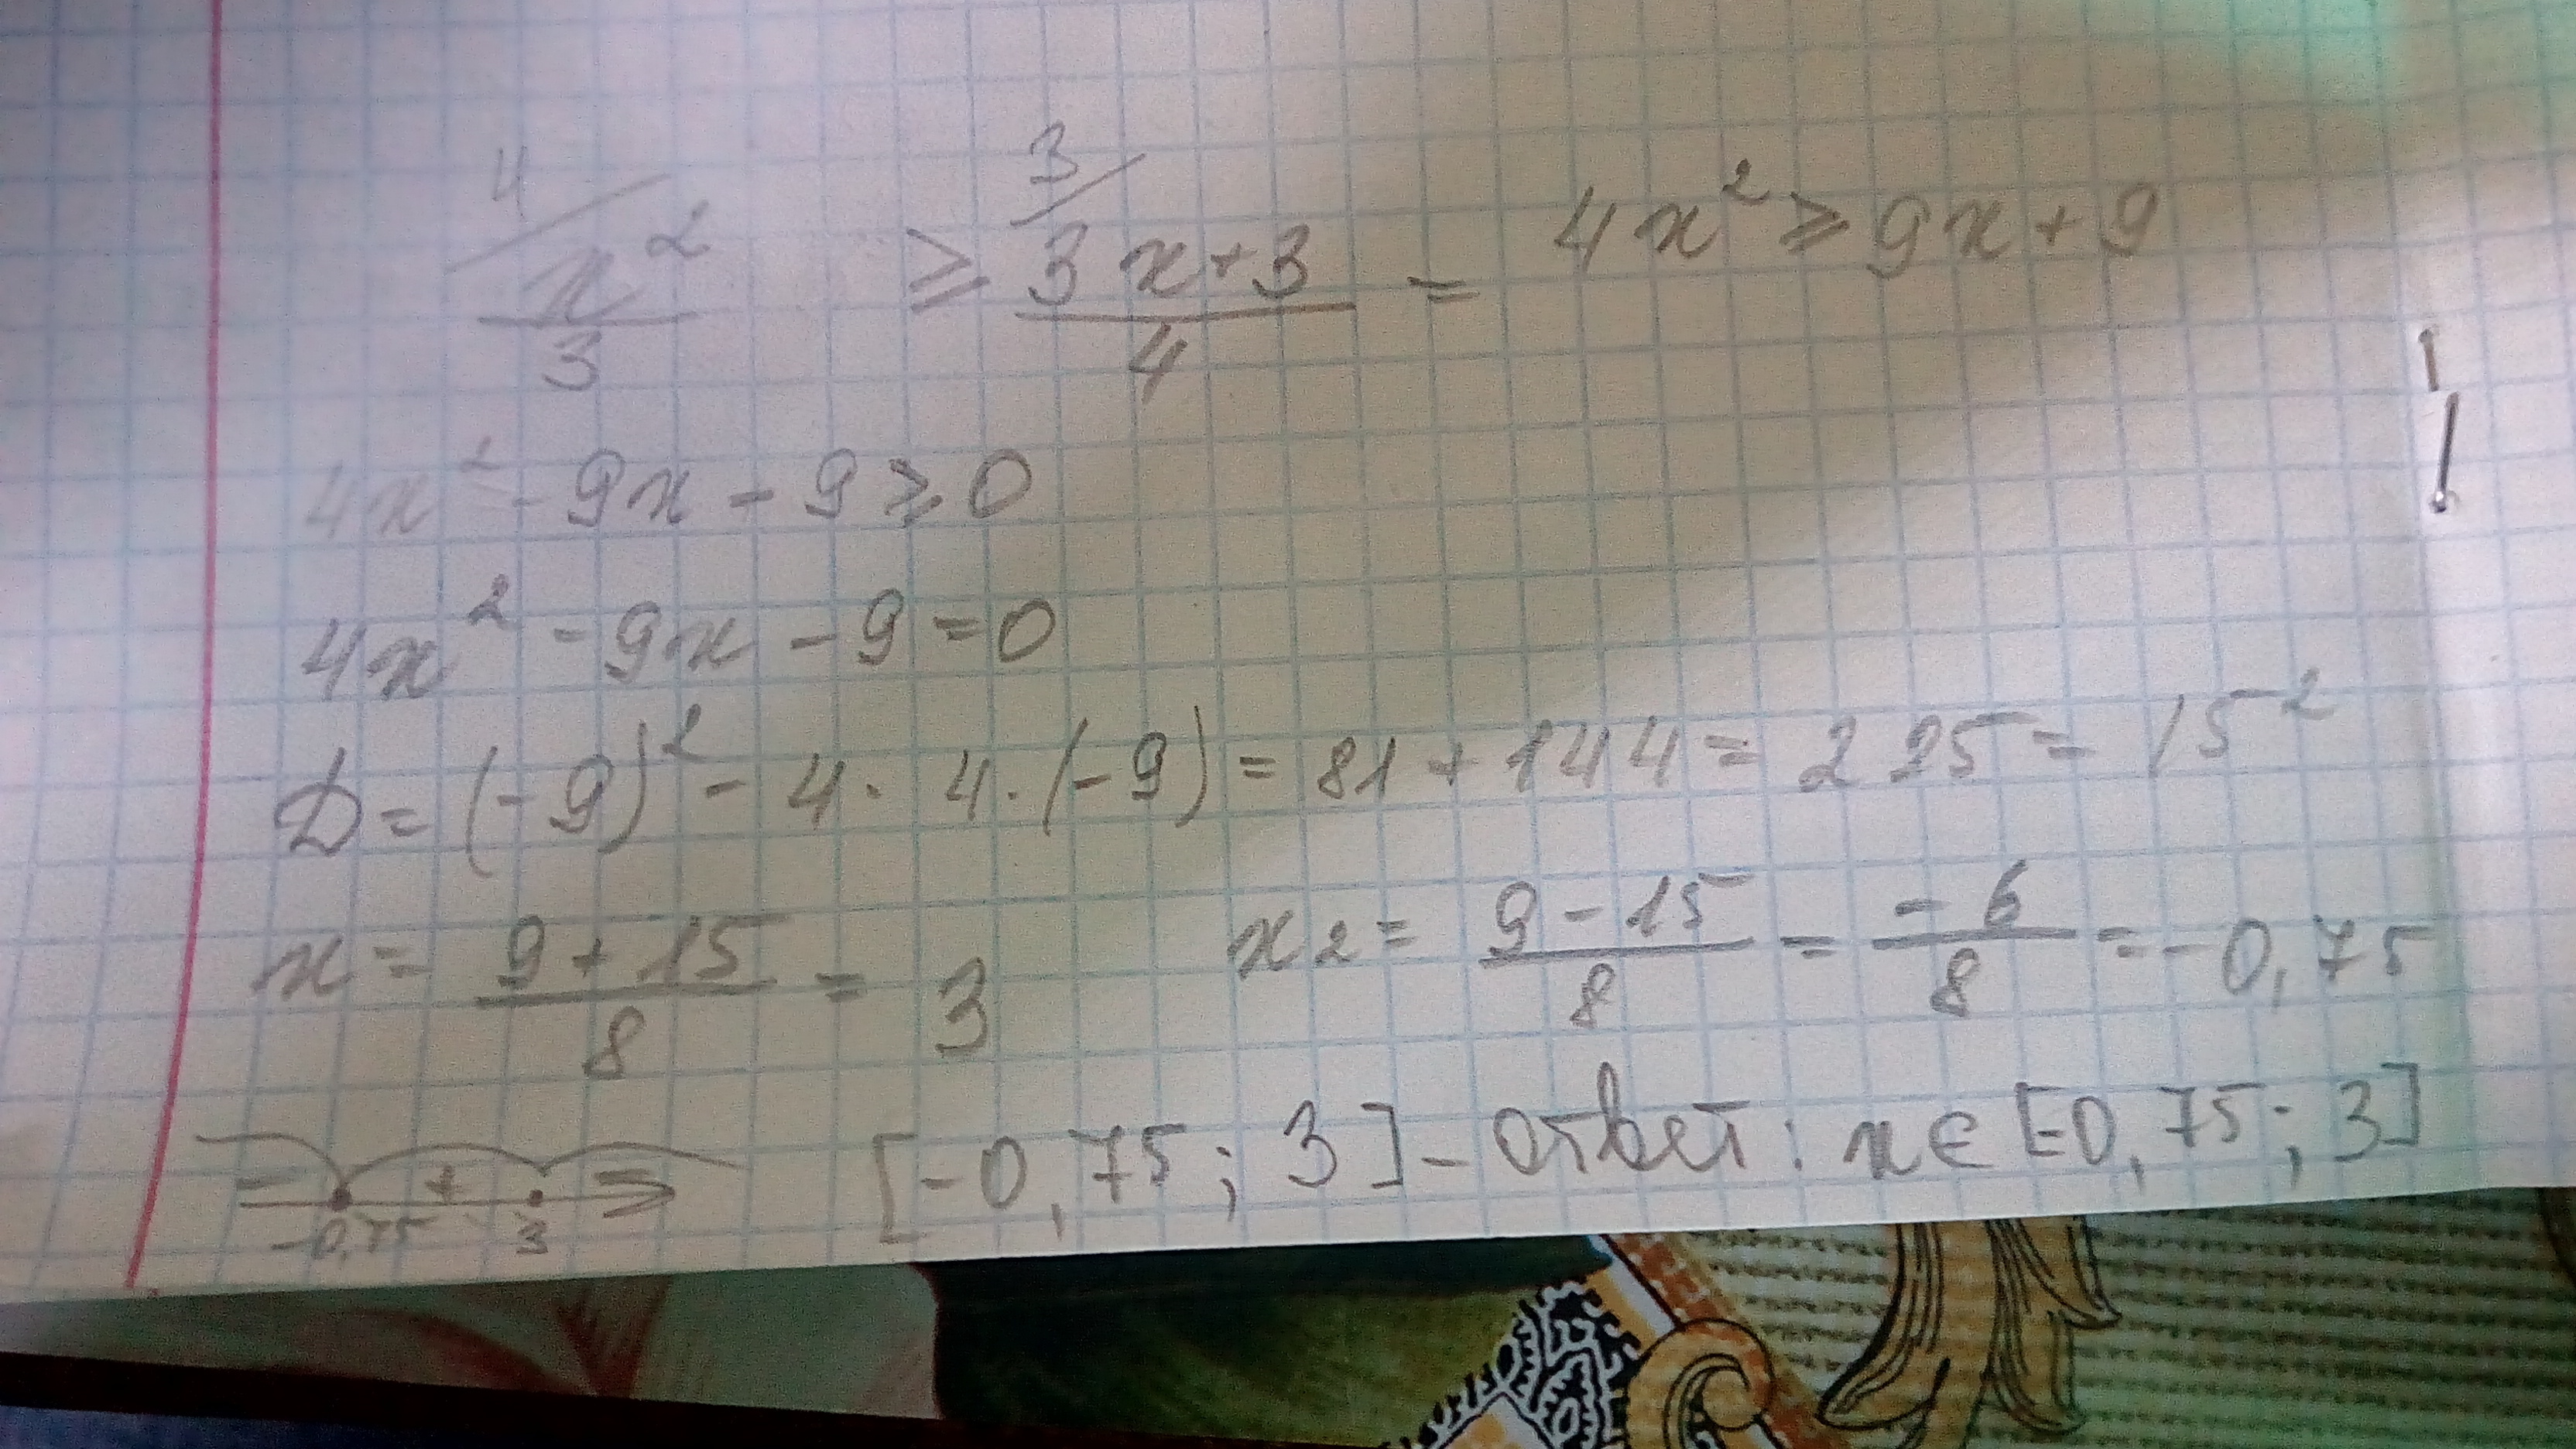 4/ x²/3 ≥ 3/ (3x+3)/4 = 4x² ≥ 9x+9
4x² - 9x - 9 ≥ 0
4x² - 9x - 9 = 0
D = (-9)² - 4 · 4 · (-9) = 81 + 144 = 225 = 15²
x = (9+15)/8 = 3 x2 = (9-15)/8 = -6/8 = -0,75
- + - -0,75 3 [-0,75; 3] - ответ: x ∈ [-0,75; 3]